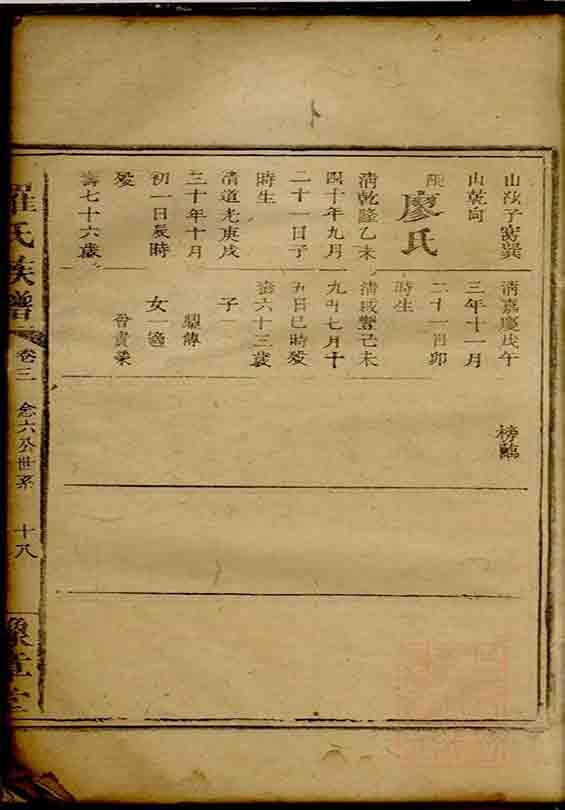 山孜子窩巽
山乾向
配
廖氏
清乾隆乙未
四十年九月
二十一日子
時生
清道光庚戌
三十年十月
初一日辰時
歿
壽七十六歲
清嘉慶戊午
三年十一月
二十一日卯
時生
清咸豐己未
九年七月十
五日巳時歿
壽六十三歲
子一
女一適
曾貴柔
榜
羅氏族譜
卷三
念六公世系
十八
豫章堂